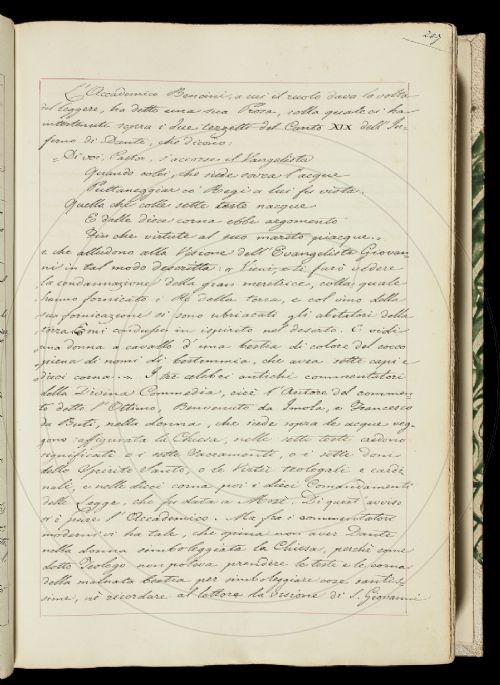 207
L'Accademico Bencini, a cui il ruolo dava la volta
del leggere, ha detto una sua Prosa, colla quale ci ha
intertenuti sopra i due terzetti del Canto XIX dell'In-
ferno di Dante, che dicono:
"Di voi, Pastor, s'accorse il Vangelista
Quando colei, che siede sovra l'acque
Puttaneggiar co' Regi a lui fu vista.
Quella che colle sette teste nacque
E dalle diece corna ebbe argomento
Fin che virtute al suo marito piacque."
e che alludono alla Visione dell'Evangelista Giovan-
ni in tal modo descritta: "Vieni, e ti farò vedere
la condannazione della gran meretrice, colla quale
hanno fornicato i Re della terra, e col vino della
sua fornicazione si sono ubriacati gli abitatori della
terra. E mi condusse in ispirito nel deserto. E vidi
una donna a cavallo d'una bestia di colore del cocco
piena di nomi di bestemmia, che avea sette capi e
dieci corna." I tre celebri antichi commentatori
della Divina Commedia, cioè l'Autore del commen-
to detto l'Ottimo, Benvenuto da Imola, e Francesco
da Buti, nella donna, che siede sopra le acque veg-
gono affigurata la Chiesa, nelle sette teste credono
significate o i sette Sacramenti, o i sette doni
dello Spirito Santo, o le Virtù teologali e cardi-
nali, e nelle dieci corna poi i dieci Comandamenti
della Legge, che fu data a Mosè. Di quest'avviso
si è pure l'Accademico. Ma fra i commentatori
moderni vi ha tale, che opina non aver Dante
nella donna simboleggiata la Chiesa, perchè egli
dotto Teologo non poteva prendere le teste e le corna
della malnata bestia per simboleggiare cose santis-
sime, nè ricordare al lettore la visione di S. Giovanni